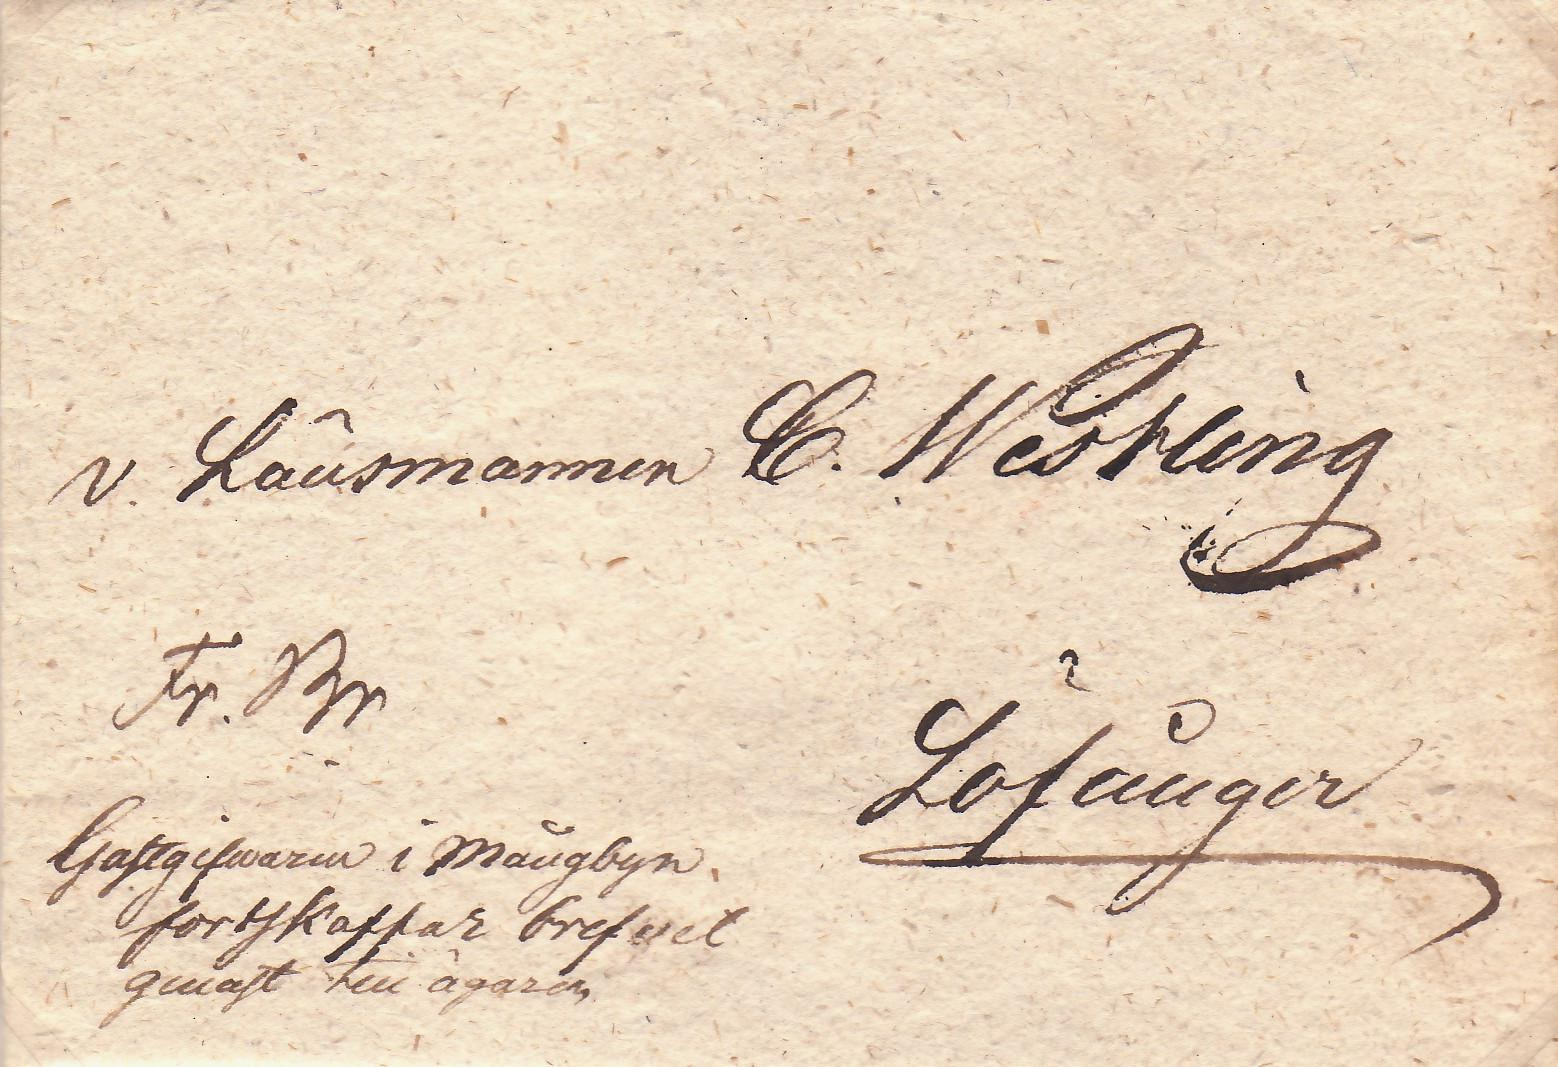 v. Länsmannen C. Westling
Fr. Br
Löfånger
Gästgifwaren i Mångbyn
fortskaffar brefvet
genast till ägaren